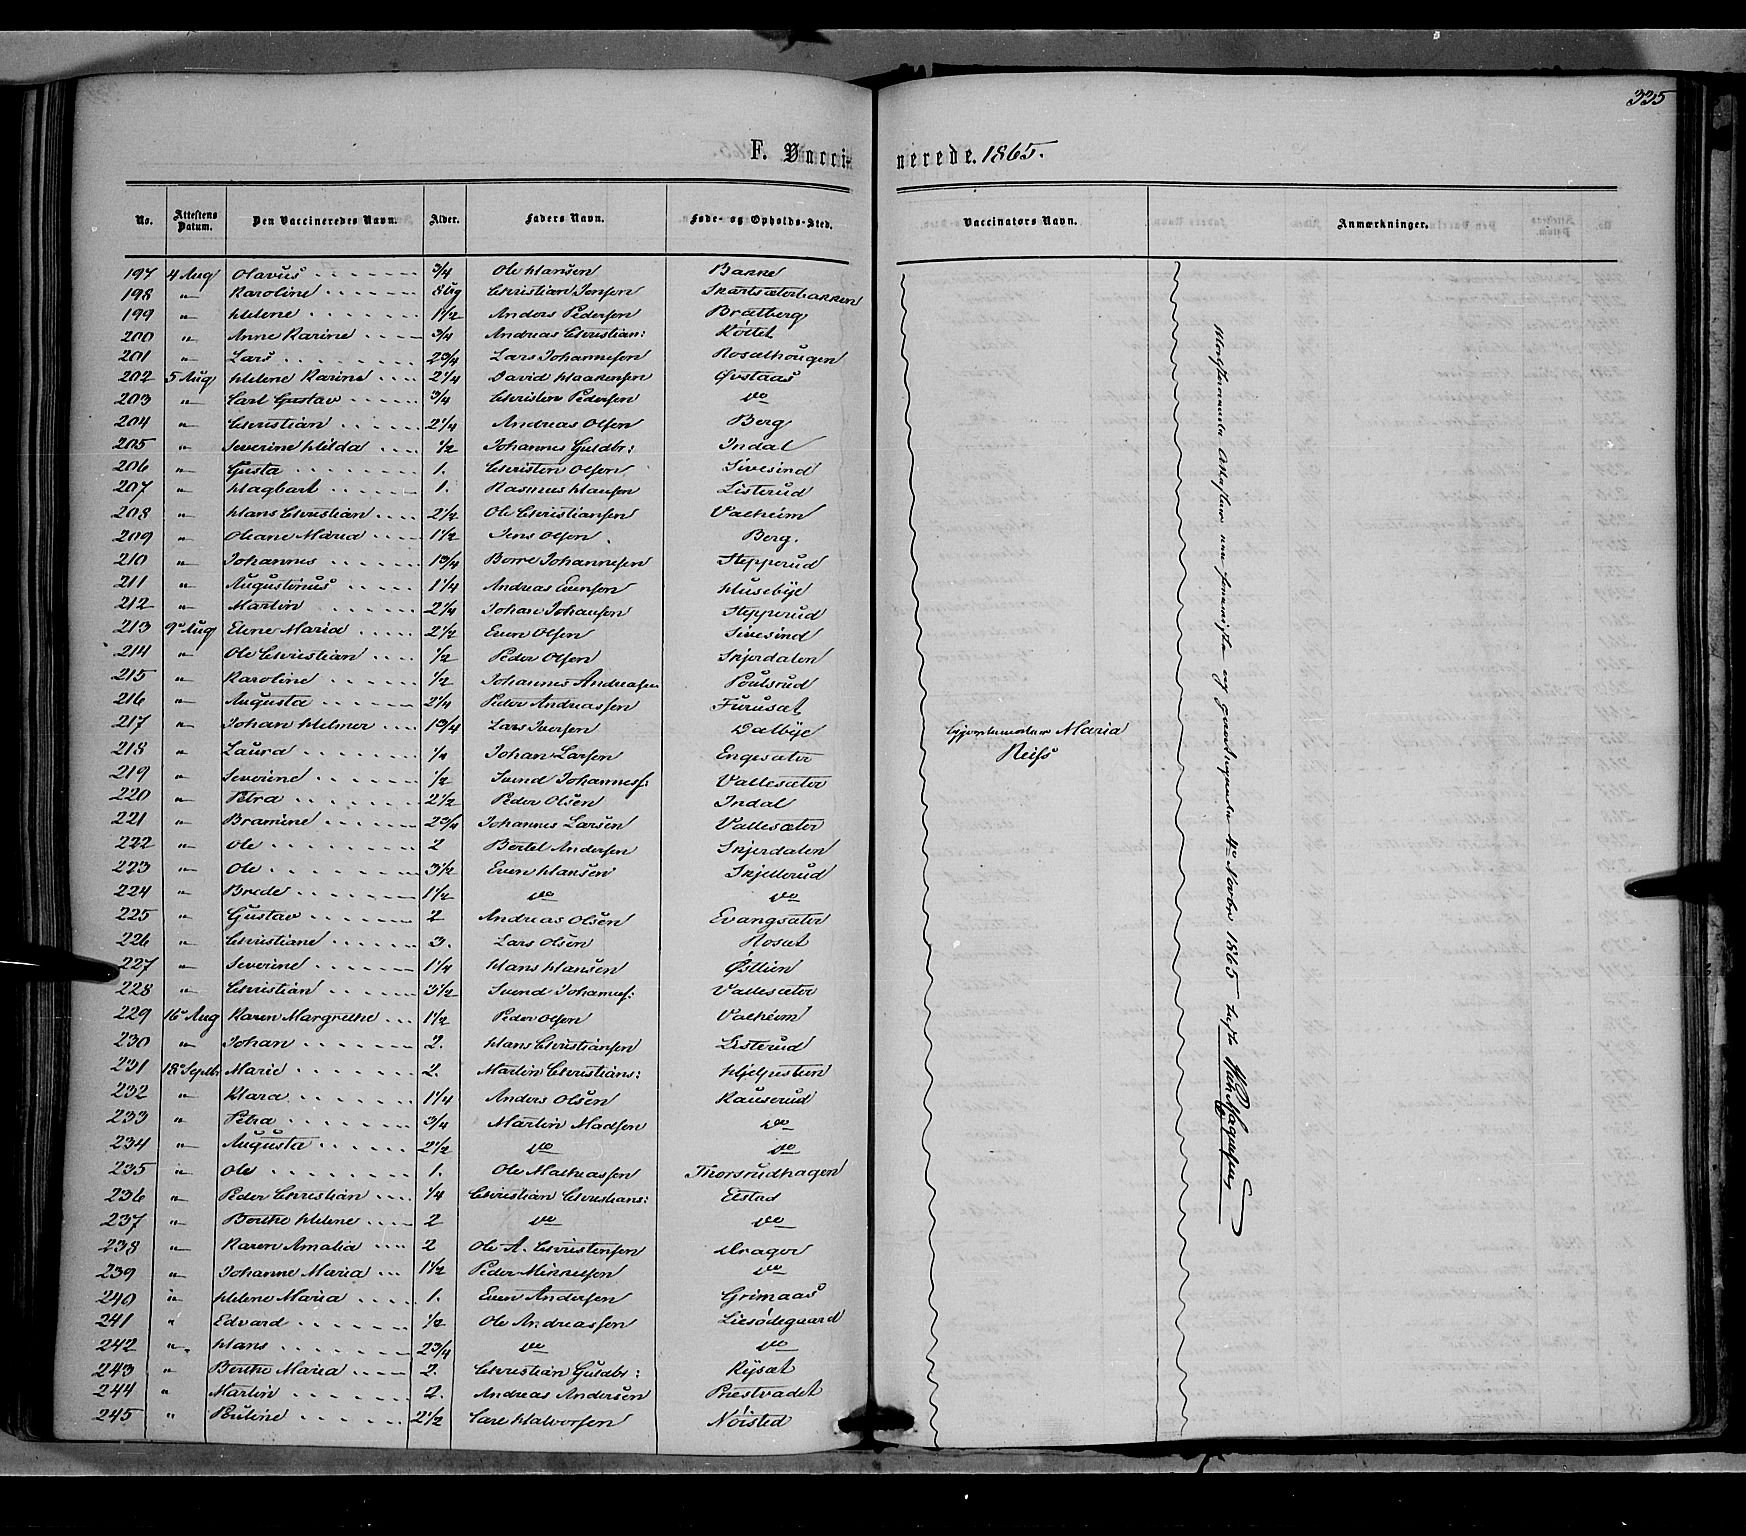 335
F. Vaccinerede. 1865.
No. Attestens Datum. Den Vaccineredes Navn. Alder. Faders Navn. Føde- og Opholds-Sted. Vaccinators Navn. Anmærkninger.
197 4 Aug Olavus 3/4 Ole Hansen Bakke
198 " Karoline 8 Ug Christian Jonsen Skartsæterbakken
199 " Helene 1 1/2 Anders Pedersen Bratberg
200 " Anne Karine 3/4 Andreas Christian:
201 " Lars 2 3/4 Lars Johannesen Rosalhougen
202 5 Aug Helene Karine 2 1/4 David Haakensen Øvstaas
203 " Carl Gustav 3/4 Christen Pedersen do
204 " Christian 2 1/4 Andreas Olsen Berg
205 " Severine Hilda 1/2 Johannes Guldbr: Indal
206 " Gusta 1. Christen Olsen Sivesind
207 " Hagbart 1. Rasmus Hansen Listerud
208 " Hans Christian 2 1/2 Ole Christiansen Valheim
209 " Oleane Maria 1 1/2 Jens Olsen Berg.
210 " Johannes 1 3/4 Borre Johannesen Stepperud
211 " Augustinus 1 1/4 Andreas Evensen Husebye
212 " Martin 2 1/4 Johan Johansen Stepperud
213 9 Aug Elene Maria 2 1/2 Even Olsen Sivesind
214 " Ole Christian 1/2 Peder Olsen Skjerdalen
215 " Karoline 1/2 Johannes Andreasen Poulsrud
216 " Augusta 2 1/4 Peder Andreassen Furuset
217 " Johan Helmer 1 3/4 Lars Iversen Dalbye Maria
218 " Laura 1/4 Johan Larsen Engesæter Reiss
219 " Severine 1/2 Svend Johannesf: Vallesæter
220 " Petra 2 1/2 Peder Olsen Indal
221 " Bramine 2 3/4 Johannes Larsen Vallesæter
222 " Ole 2 Bertel Andersen Skjerdalen
223 " Ole 3 1/2 Even Hansen Skjellerud
224 " Brede 1 1/2 do do
225 " Gustav 2 Andreas Olsen Evangsæter
226 " Christiane 3. Lars Olsen Roset
227 " Severine 1 1/4 Hans Hansen Østlien
228 " Christian 3 1/2 Svend Johannesf: Vallesæter
229 16 Aug Karen Margrethe 1 1/2 Peder Olsen Valheim
230 " Johan 2. Hans Christiansen Listerud
231 18 Septbr Marie 2. Martin Christians:
232 " Klara 1 1/4 Anders Olsen Rauserud
233 " Petra 3/4 Martin Madsen do
234 " Augusta 2 1/2 do do
235 " Ole 1. Ole Mathiassen Thorsrudhagen
236 " Peder Christian 1/4 Christian Christians: Elstad
237 " Berthe Helene 2 do do
238 " Karen Amalia 2 Ole A. Christensen Drager
239 " Johanne Maria 1 1/2 Peder Mikkelsen do
240 " Helene Maria 1. Even Andersen Grimaas
241 " Edvard 1/2 Ole Andreassen Liesødegaard
242 " Hans 2 3/4 do do
243 " Berthe Maria 2. Christian Guldbr: Rysæt
244 " Martin 2. Andreas Andersen Prestvadet
245 " Pauline 2 1/2 Carl Halvorsen Nøisted
4de Novbr 1865